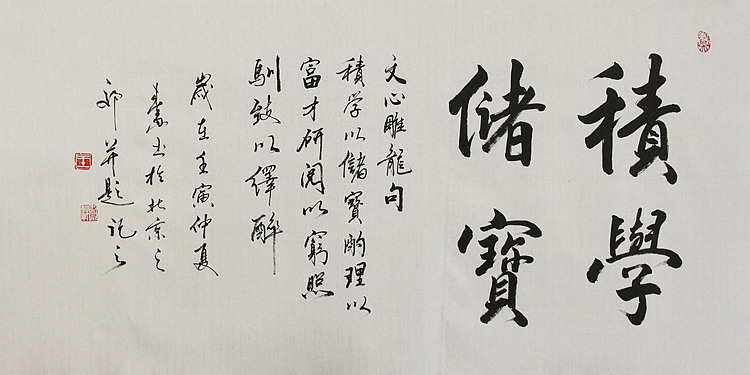 積學
儲寶
文心雕龍句
積学以儲寶酌理以
富才研阅以窮照
馴致以繹辭
歲在壬寅仲夏
書於北京之
郊并题记之